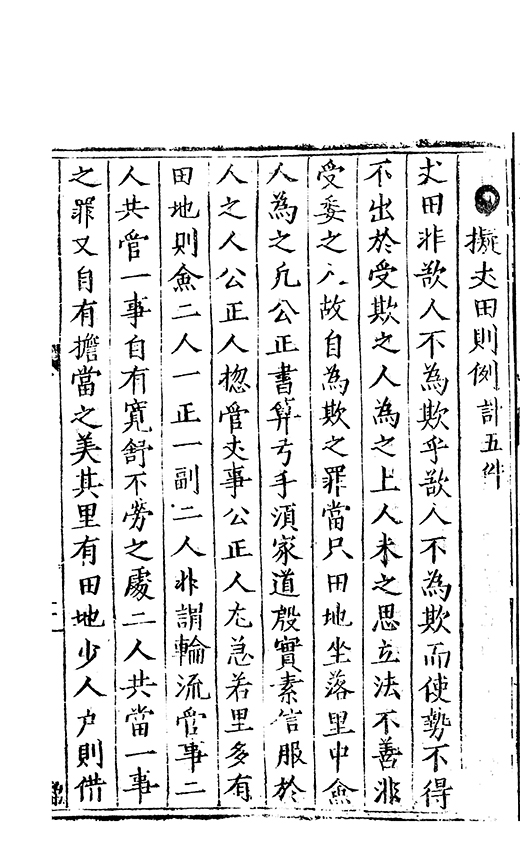 擬丈田則例計五件
丈田非欲人不為欺乎欲人不為欺而使勢不得
不出於受欺之人為之上人未之思立法不善非
受委之人故自為欺之罪當只田地坐落里中僉
人為之凡公正書算弓手須家道殷實素信服於
人之人公正人揔管丈事公正人尤急若里多有
田地則僉二人一正一副二人非謂輪流管事二
人共管一事自有寬舒不勞之處二人共當一事
之罪又自有擔當之美其里有田地少人户則借